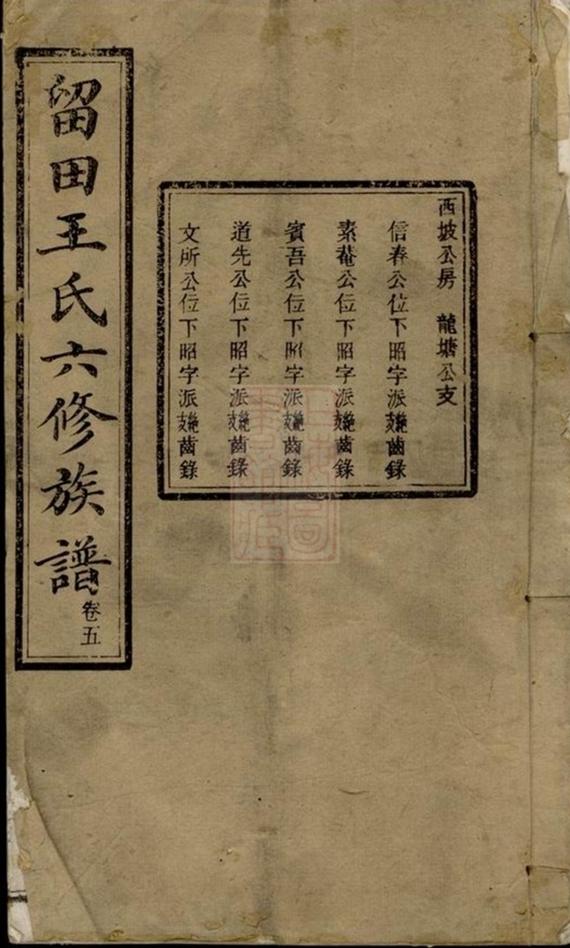 留田王氏六修族譜卷五
西坡公房 龍塘公支
信春公位下昭字派絕支齒錄
素菴公位下昭字派絕支齒錄
賓吾公位下昭字派絕支齒錄
道先公位下昭字派絕支齒錄
文所公位下昭字派絕支齒錄